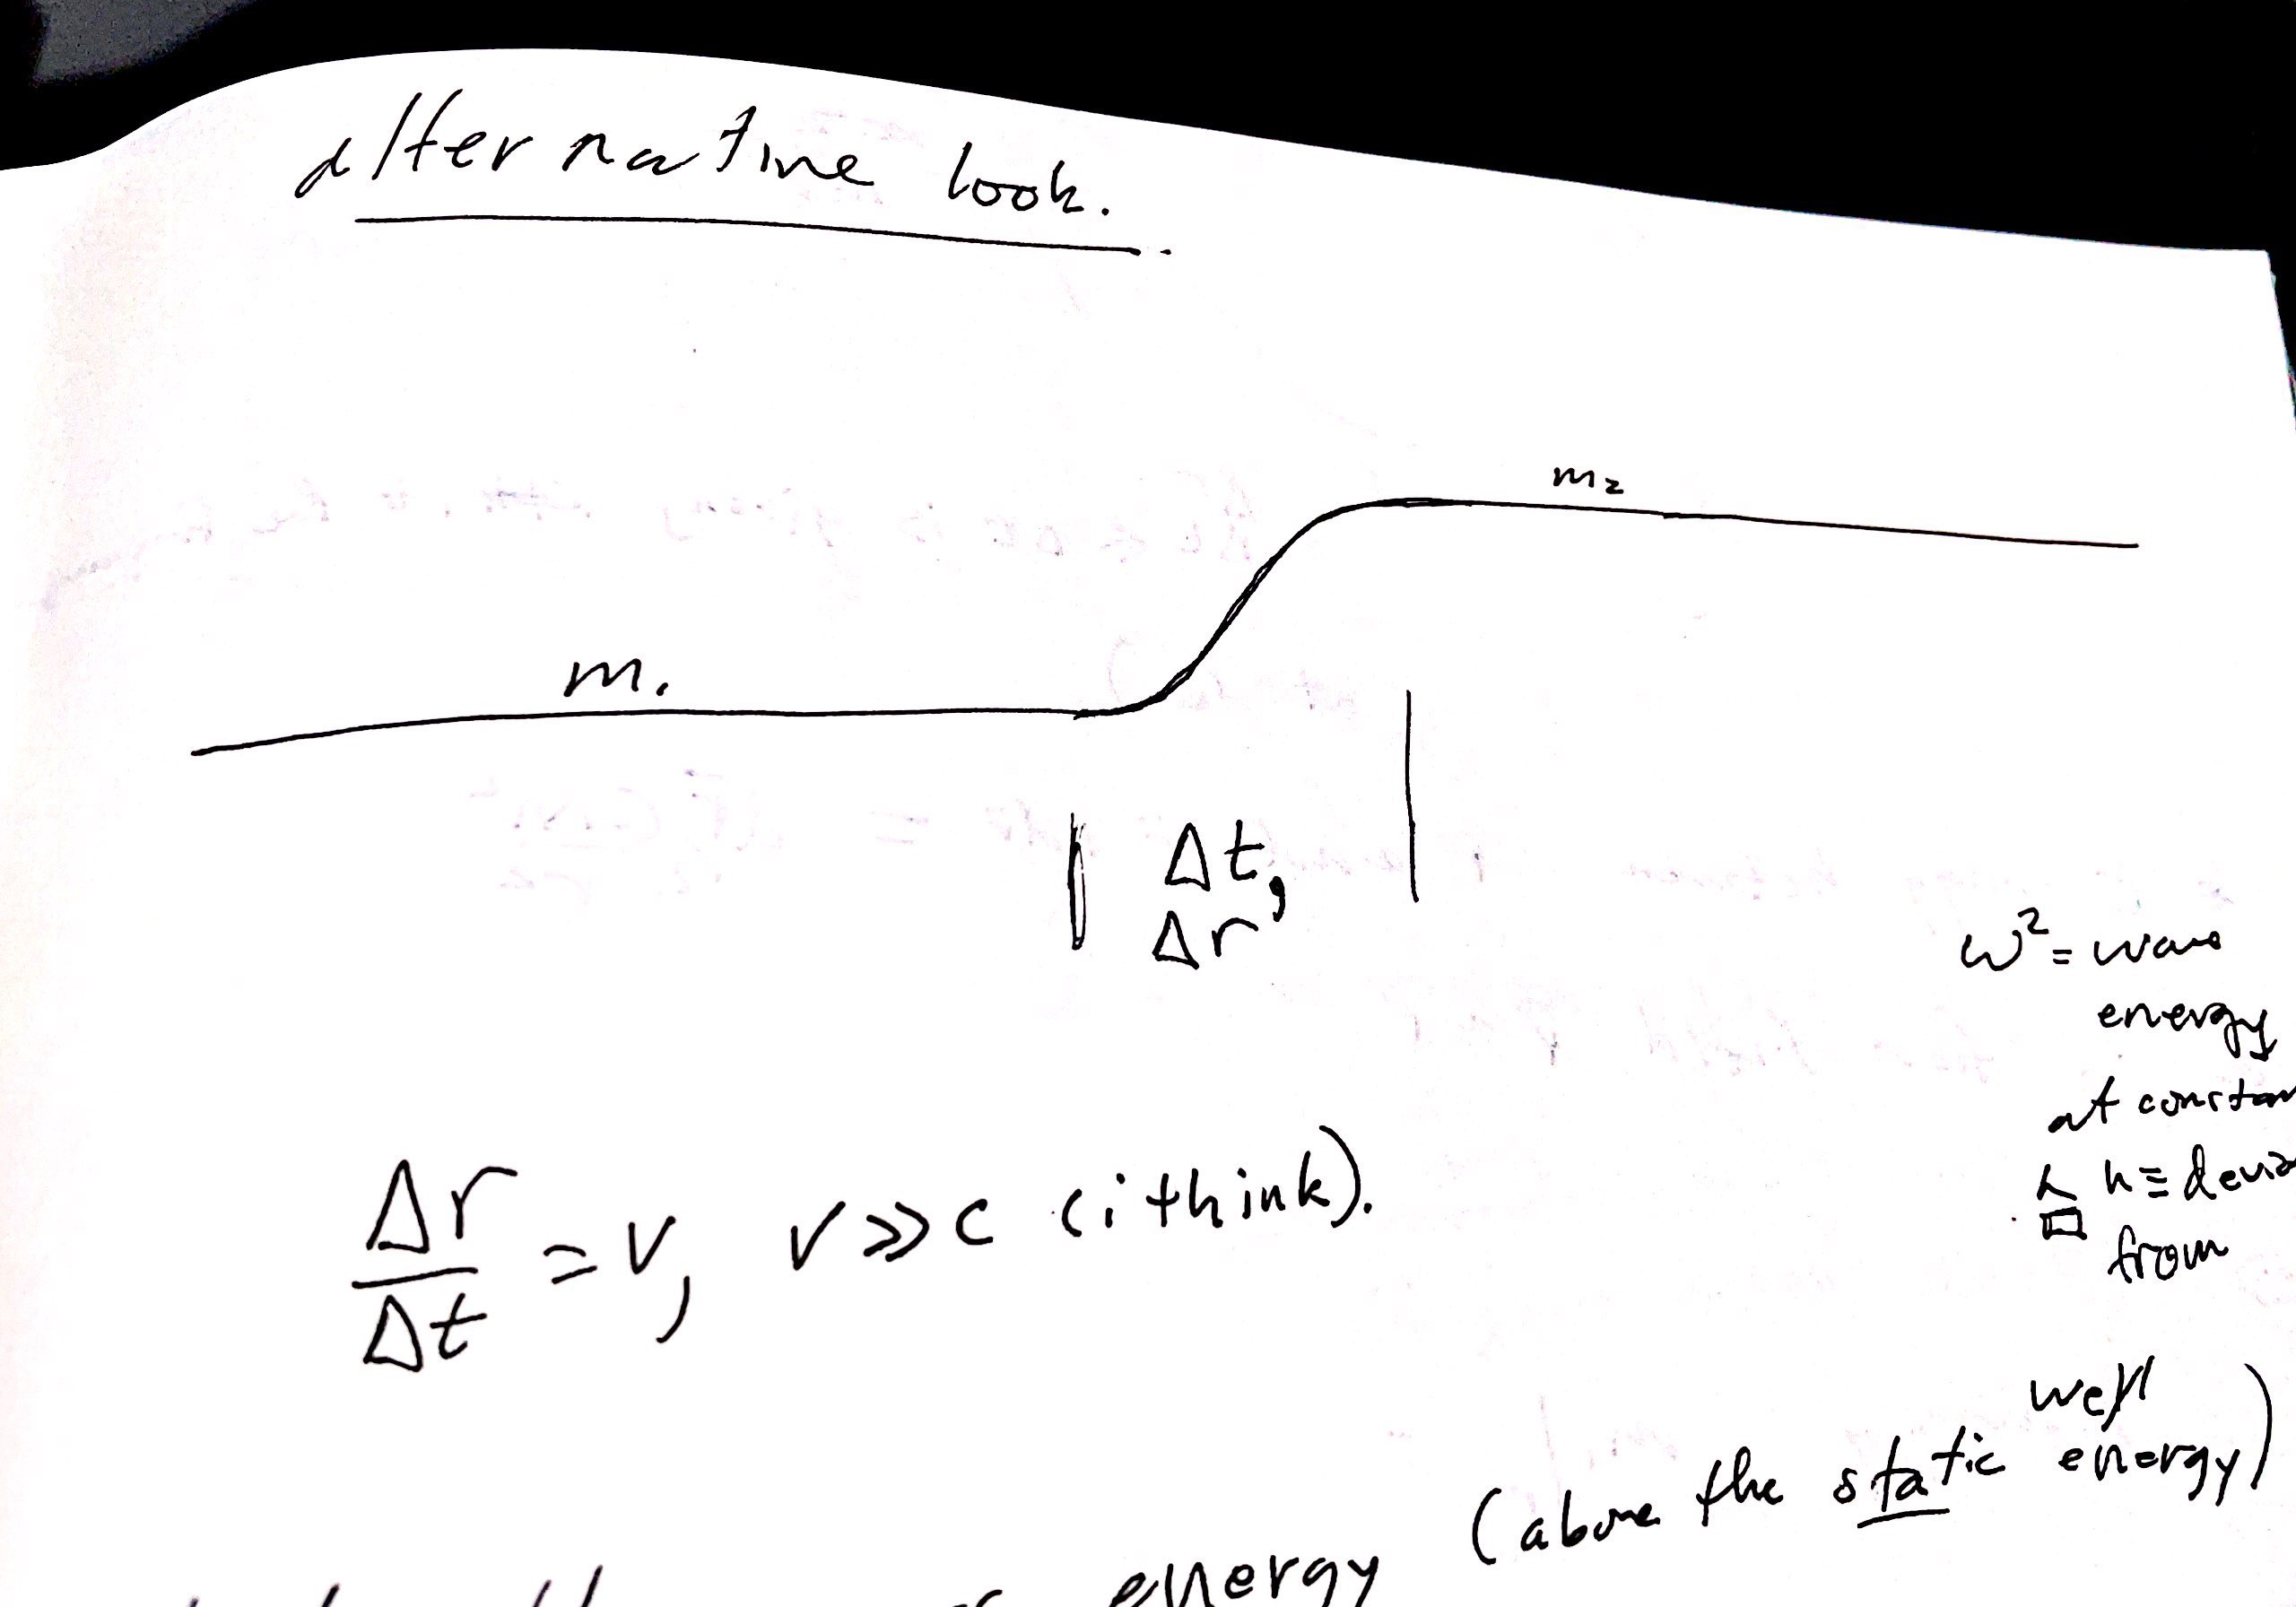 alternative look.
m₂
m₁
Δt,
Δr
ω² = wave
energy
at constan
h ≡ devia
from
Δr/Δt = v, v >> c (i think).
well
(above the static energy)
energy